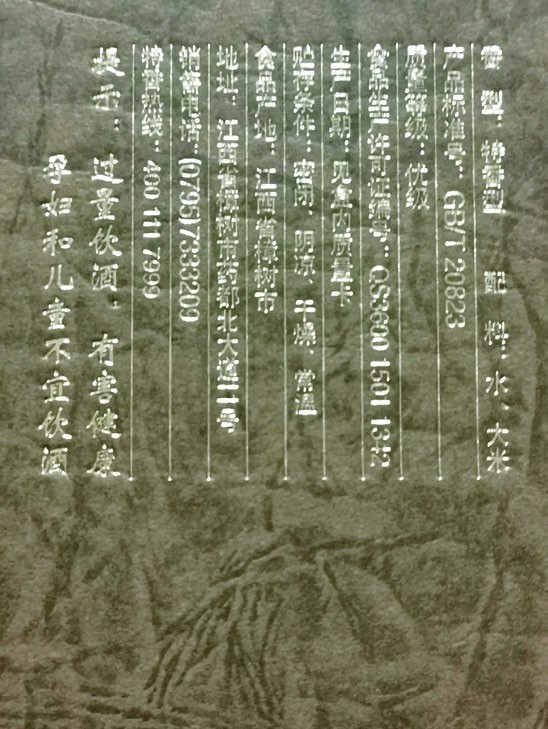 香型：特香型 配料：水、大米
产品标准号：GB/T 20823
质量等级：优级
食品生产许可证编号：QS3600 1501 1342
生产日期：见盒内质量卡
贮存条件：密闭、阴凉、干燥、常温
食品产地：江西省樟树市
地址：江西省樟树市药都北大道二号
销售电话：(0795)7333209
特督热线：400 111 7999
提示：过量饮酒，有害健康
孕妇和儿童不宜饮酒